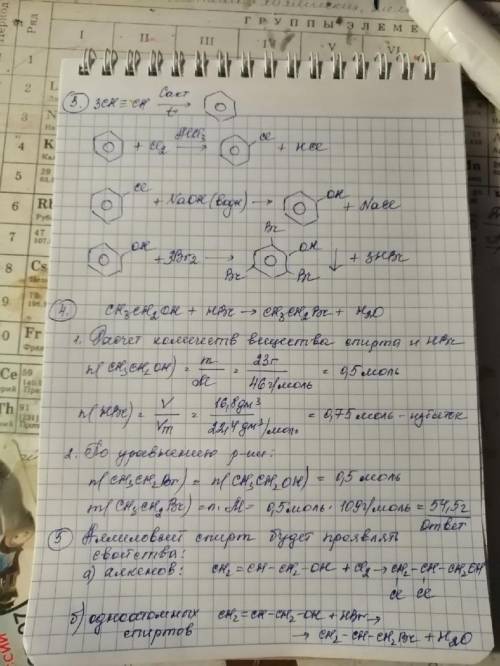 ГРУППЫ ЭЛЕМЕ
Период
Ряд
I II III IV V VI
3. 3CH≡CH Cакт t →
+ Cl2 AlCl3 → Cl + HCl
Cl + NaOH (водн) → OH + NaCl
OH + 3Br2 → Br OH Br Br ↓ + 3HBr
4. CH3CH2OH + HBr → CH3CH2Br + H2O
1. Расчет количеств вещества спирта и HBr
n(CH3CH2OH) = m/M = 23г / 46г/моль = 0,5 моль
n(HBr) = V/Vm = 16,8дм³ / 22,4дм³/моль = 0,75 моль - избыток
2. По уравнению р-ии:
n(CH3CH2Br) = n(CH3CH2OH) = 0,5 моль
m(CH3CH2Br) = n·M = 0,5моль · 109г/моль = 54,5г
ответ
5 Аллиловый спирт будет проявлять
свойства:
а) алкенов: CH2=CH-CH2-OH + Cl2 → CH2-CH-CH2OH
Cl Cl
б) одноатомных CH2=CH-CH2-OH + HBr →
спиртов → CH2-CH-CH2Br + H2O